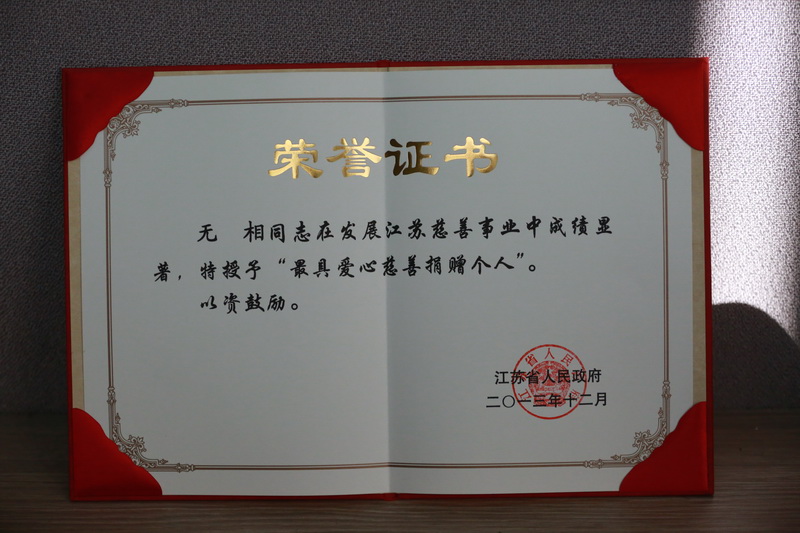 荣誉证书
无　相同志在发展江苏慈善事业中成绩显
著，特授予“最具爱心慈善捐赠个人”。
以资鼓励。
江苏省人民政府
二〇一三年十二月